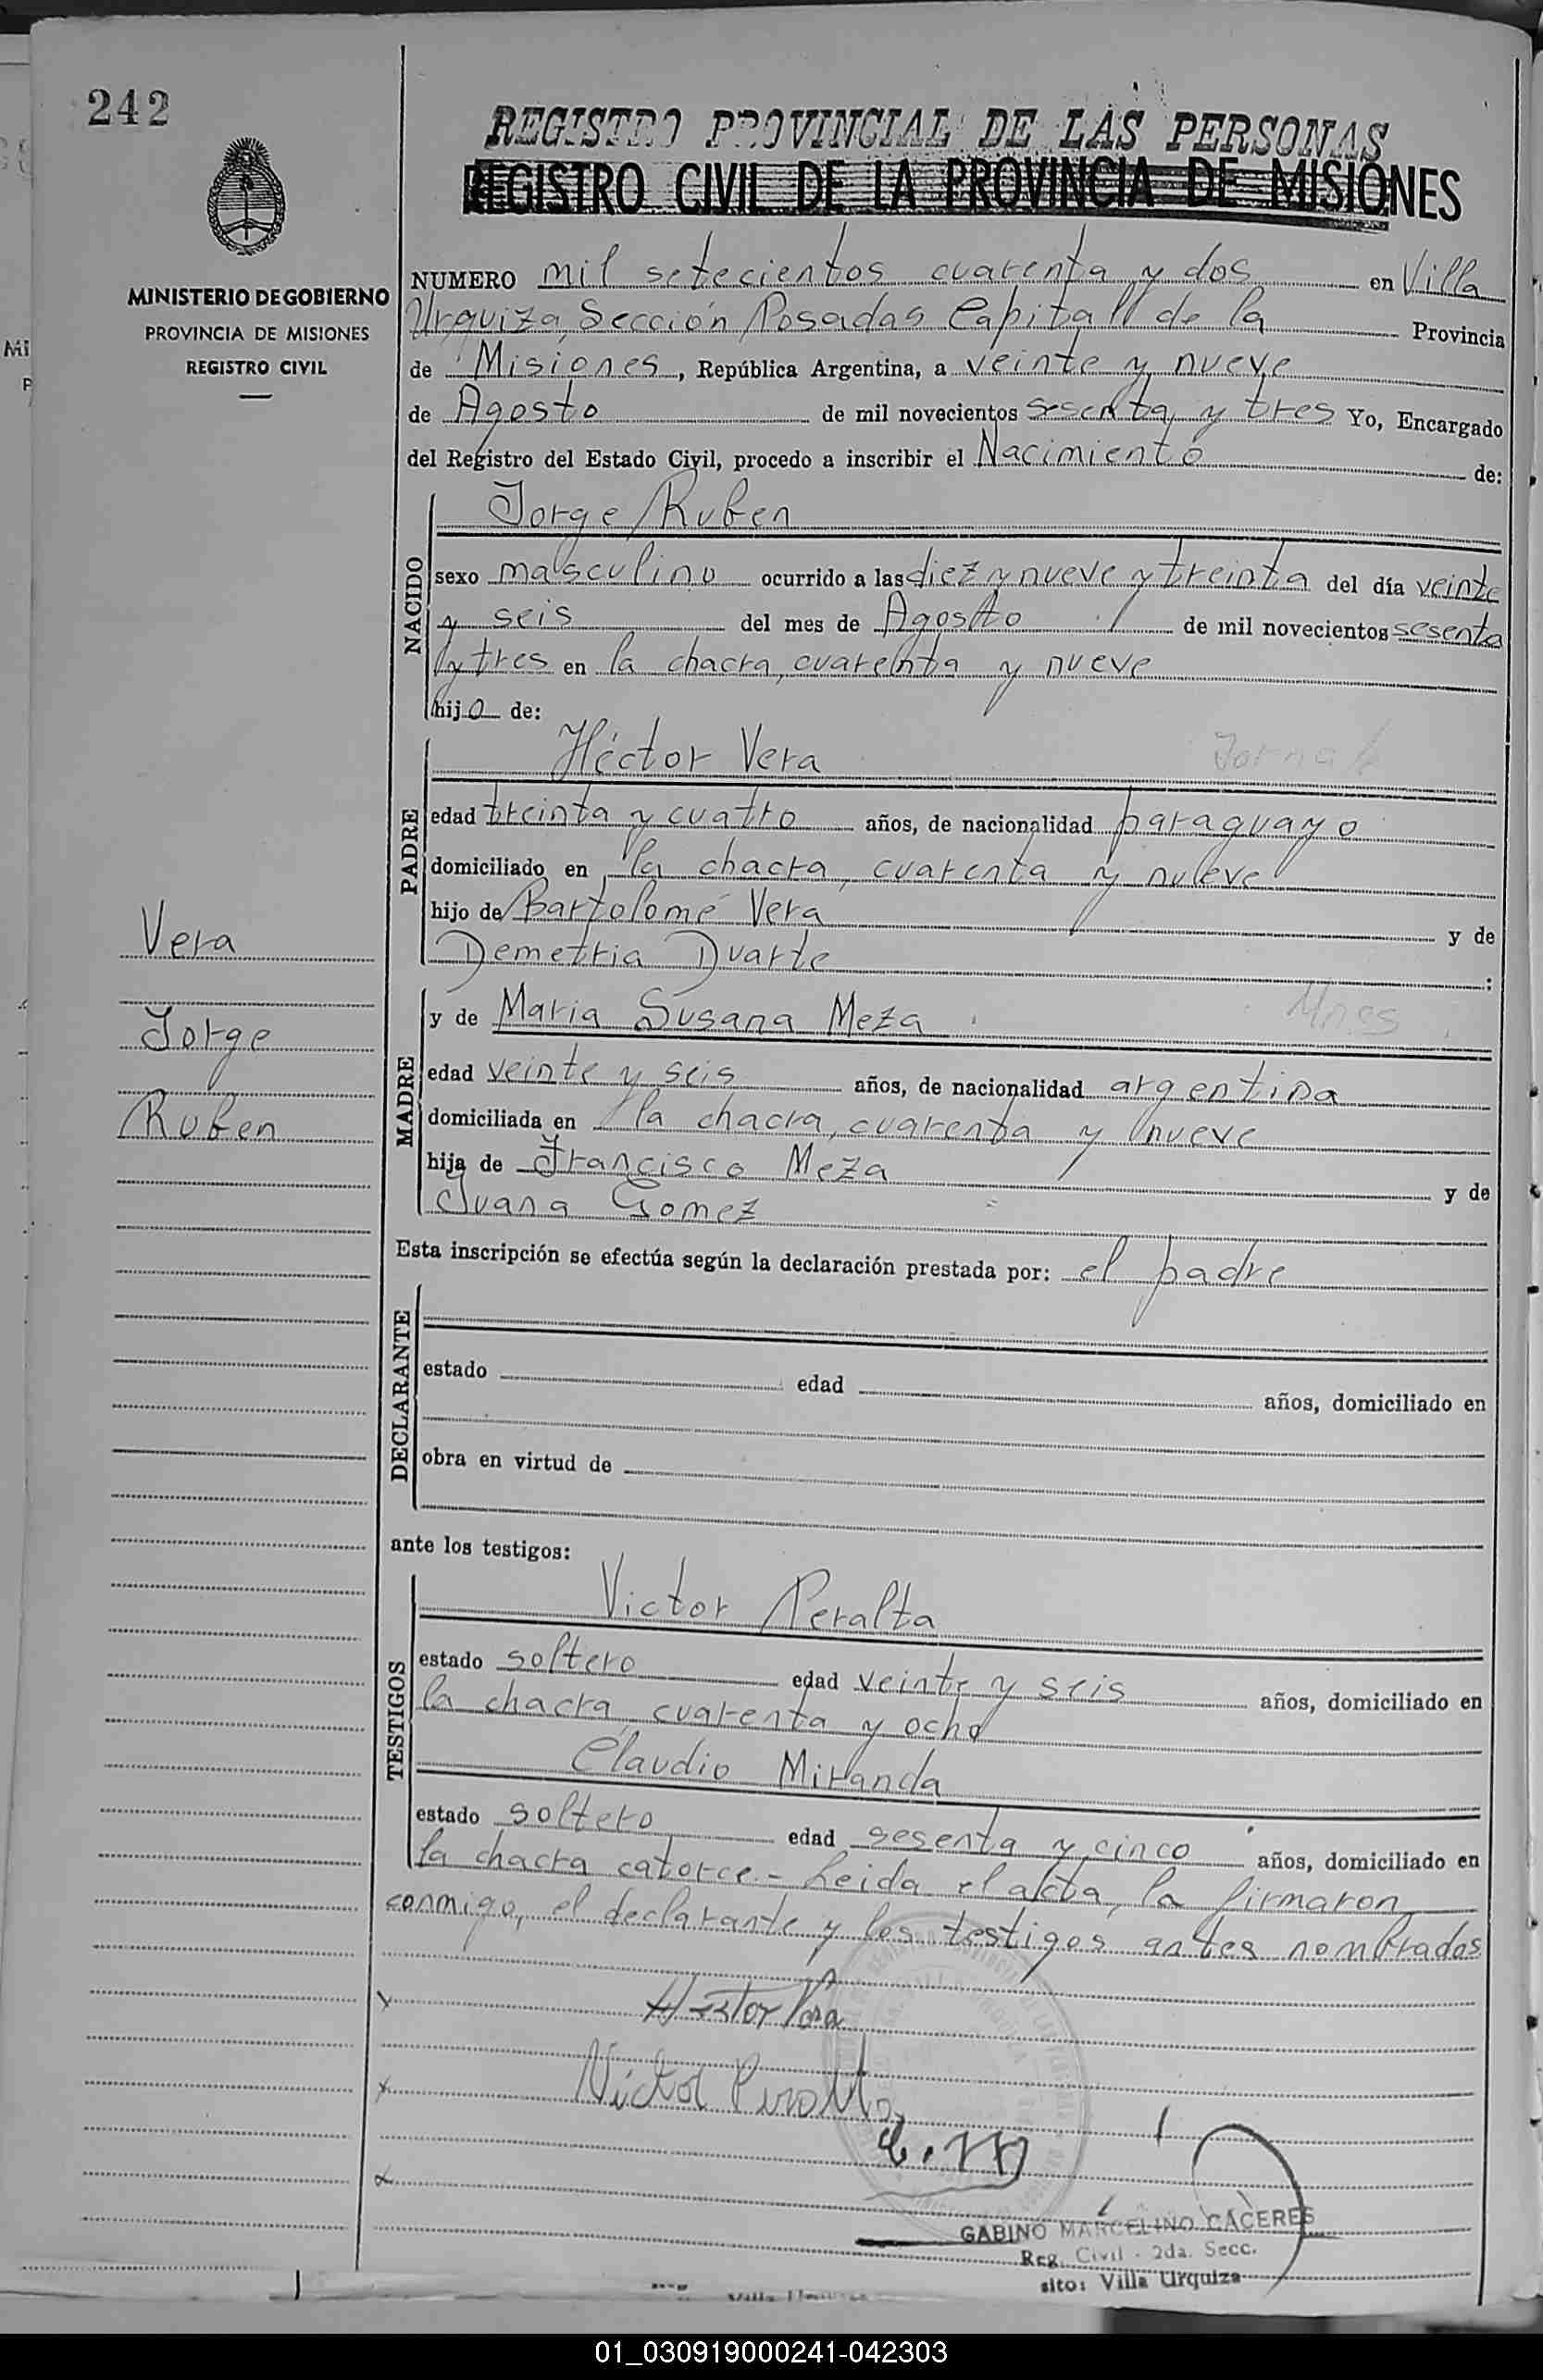 242
REGISTRO PROVINCIAL DE LAS PERSONAS
REGISTRO CIVIL DE LA PROVINCIA DE MISIONES
MINISTERIO DE GOBIERNO
PROVINCIA DE MISIONES
REGISTRO CIVIL
NUMERO mil setecientos cuarenta y dos en Villa
Urquiza, Sección Posadas Capital de la Provincia
de Misiones, República Argentina, a veinte y nueve
de Agosto de mil novecientos sesenta y tres Yo, Encargado
del Registro del Estado Civil, procedo a inscribir el Nacimiento de:
NACIDO
Jorge Ruben
sexo masculino ocurrido a las diez y nueve y treinta del día veinte
y seis del mes de Agosto de mil novecientos sesenta
y tres en la chacra, cuarenta y nueve
hijo de:
PADRE
Héctor Vera
edad treinta y cuatro años, de nacionalidad paraguayo
domiciliado en la chacra, cuarenta y nueve
hijo de Bartolomé Vera y de
Demetria Duarte :
Vera
Jorge
Ruben
MADRE
y de Maria Susana Meza Mnes
edad veinte y seis años, de nacionalidad argentina
domiciliada en la chacra, cuarenta y nueve
hija de Francisco Meza y de
Juana Gomez
Esta inscripción se efectúa según la declaración prestada por: el padre
DECLARANTE
estado edad años, domiciliado en
obra en virtud de
ante los testigos:
TESTIGOS
Victor Peralta
estado soltero edad veinte y seis años, domiciliado en
la chacra cuarenta y ocho
Claudio Miranda
estado soltero edad sesenta y cinco años, domiciliado en
la chacra catorce.- Leida el acta, la firmaron
conmigo, el declarante y los testigos antes nombrados
Hector Vera
Victor Peralta
C. M
GABINO MARCELINO CACERES
Reg. Civil - 2da. Secc.
sito: Villa Urquiza
01_030919000241-042303